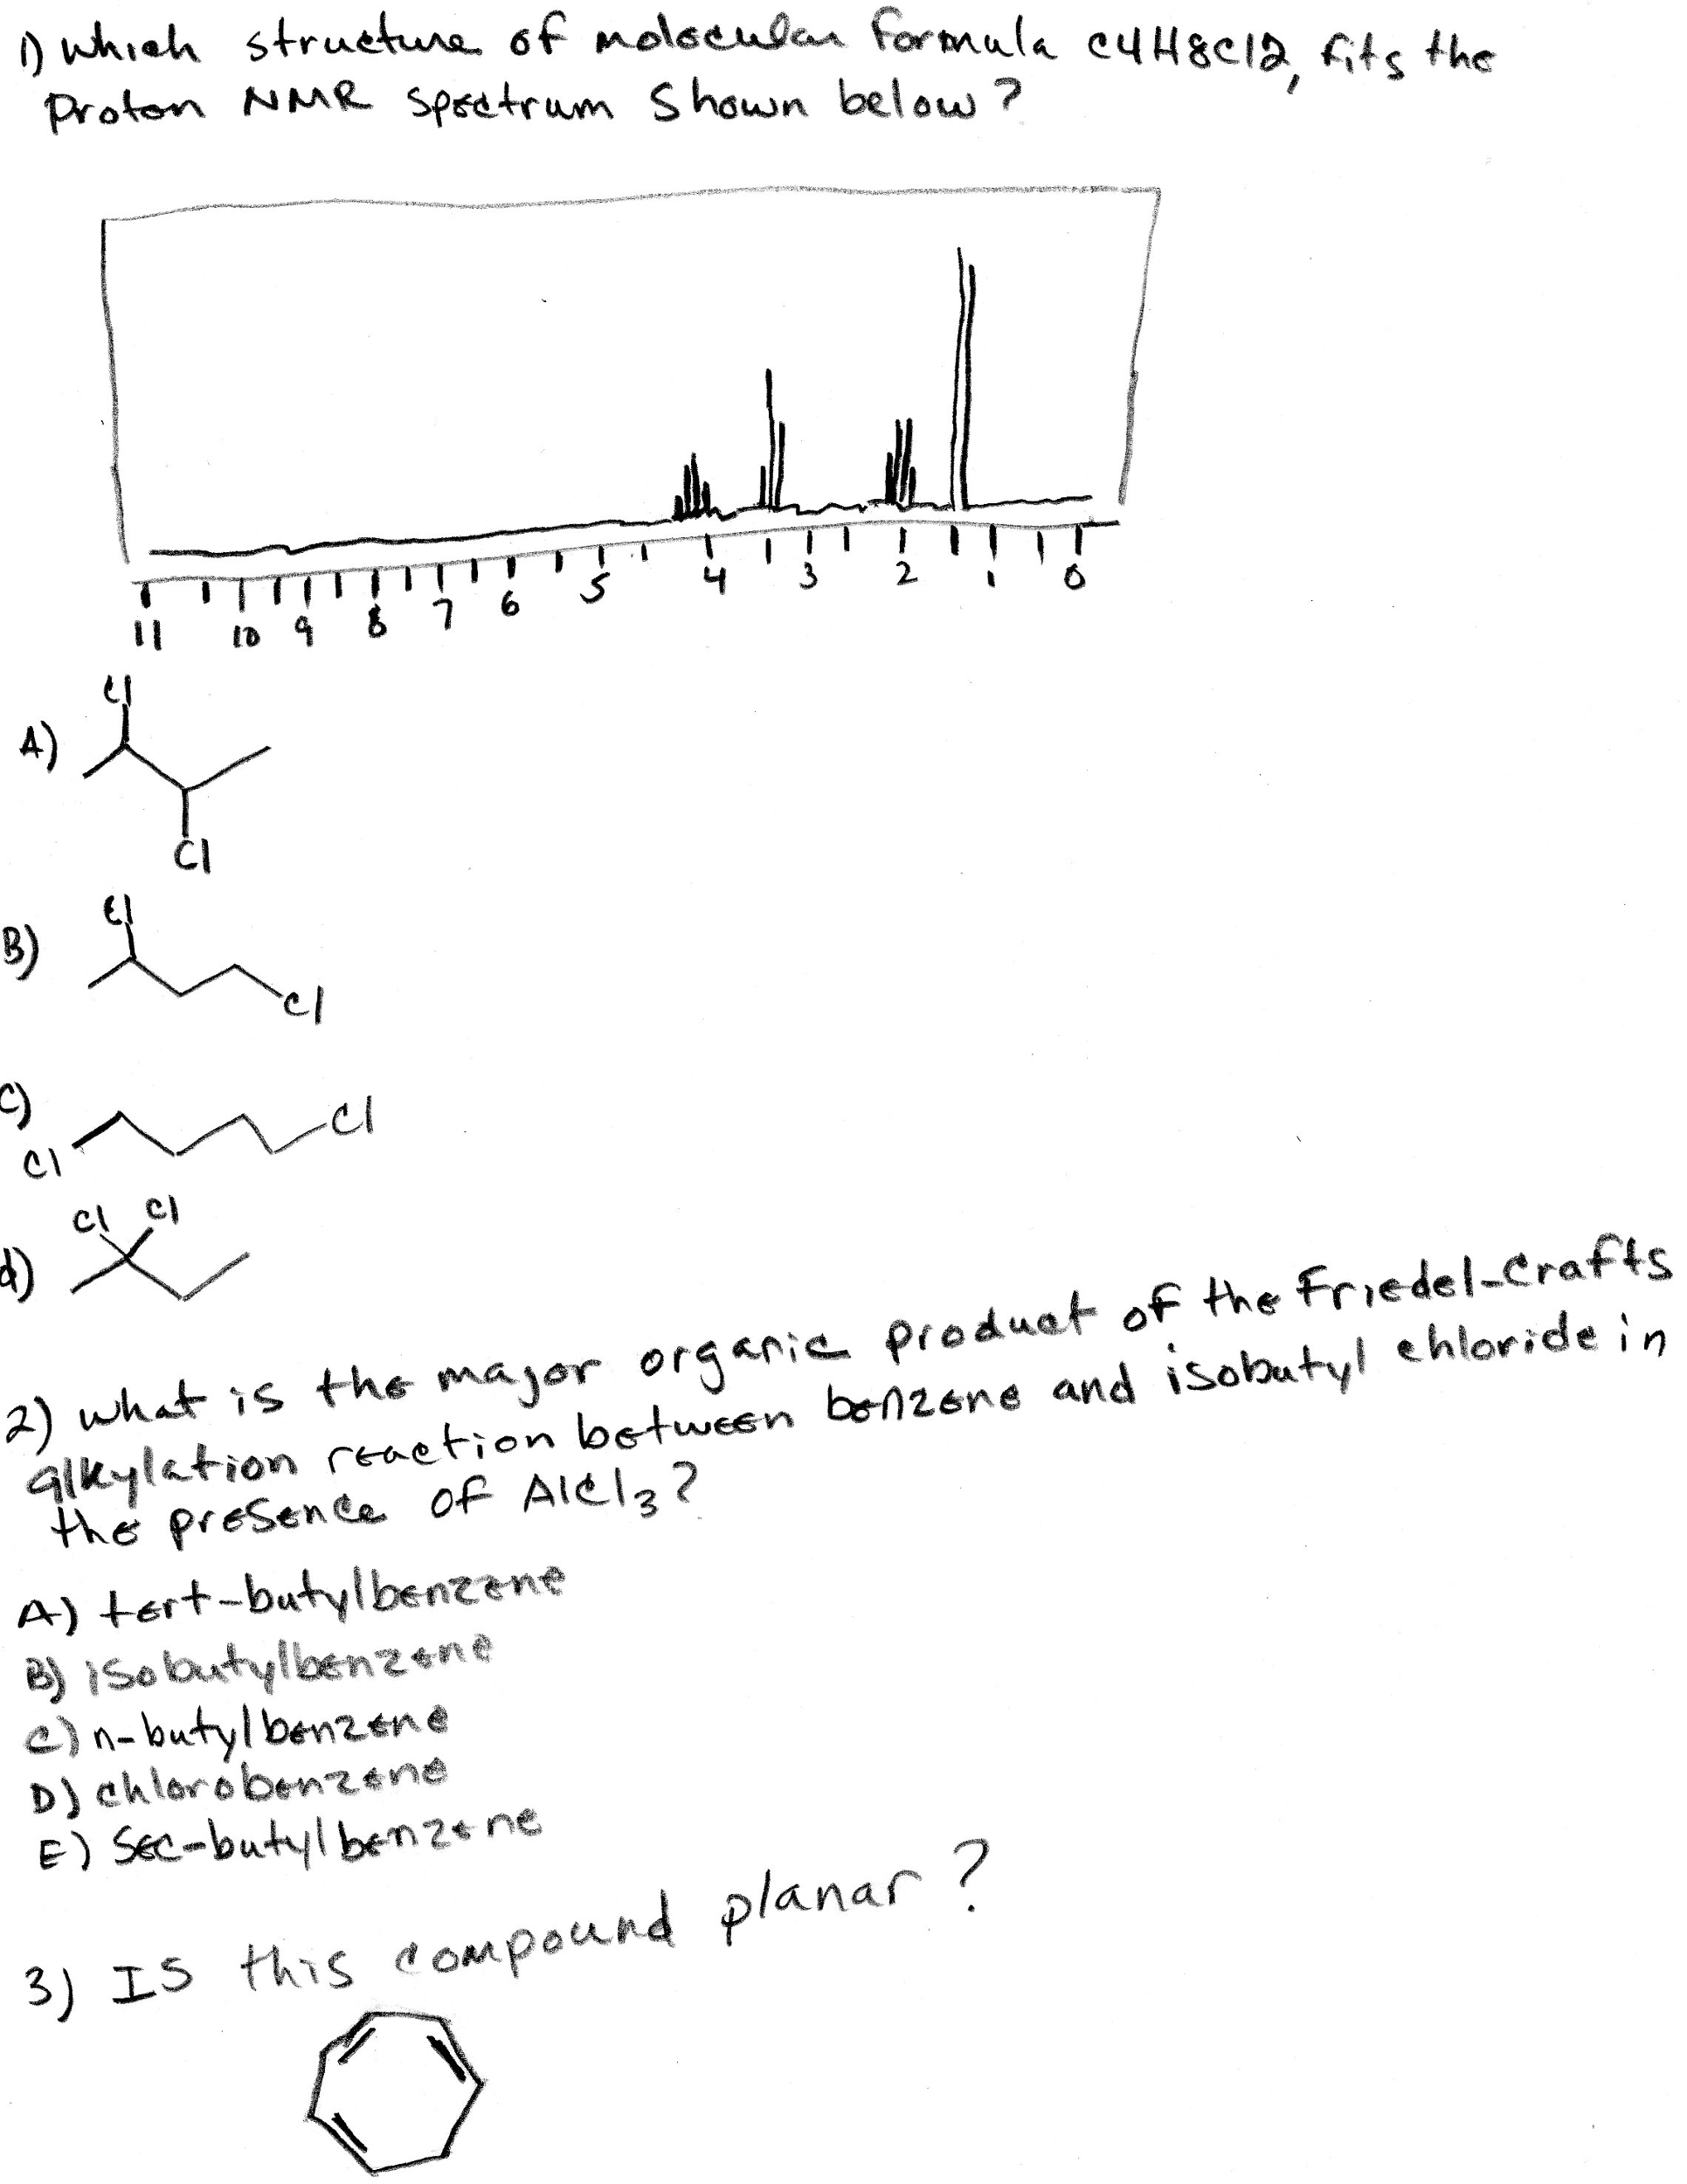 1) which structure of molecular formula C4H8Cl2, fits the
Proton NMR spectrum shown below?
11 10 9 8 7 6 5 4 3 2 1 0
A)
Cl
Cl
B)
Cl
Cl
C)
Cl
Cl
d)
Cl Cl
2) what is the major organic product of the Friedel-Crafts
alkylation reaction between benzene and isobutyl chloride in
the presence of AlCl3?
A) tert-butylbenzene
B) isobutylbenzene
C) n-butylbenzene
D) chlorobenzene
E) Sec-butylbenzene
3) IS this compound planar?